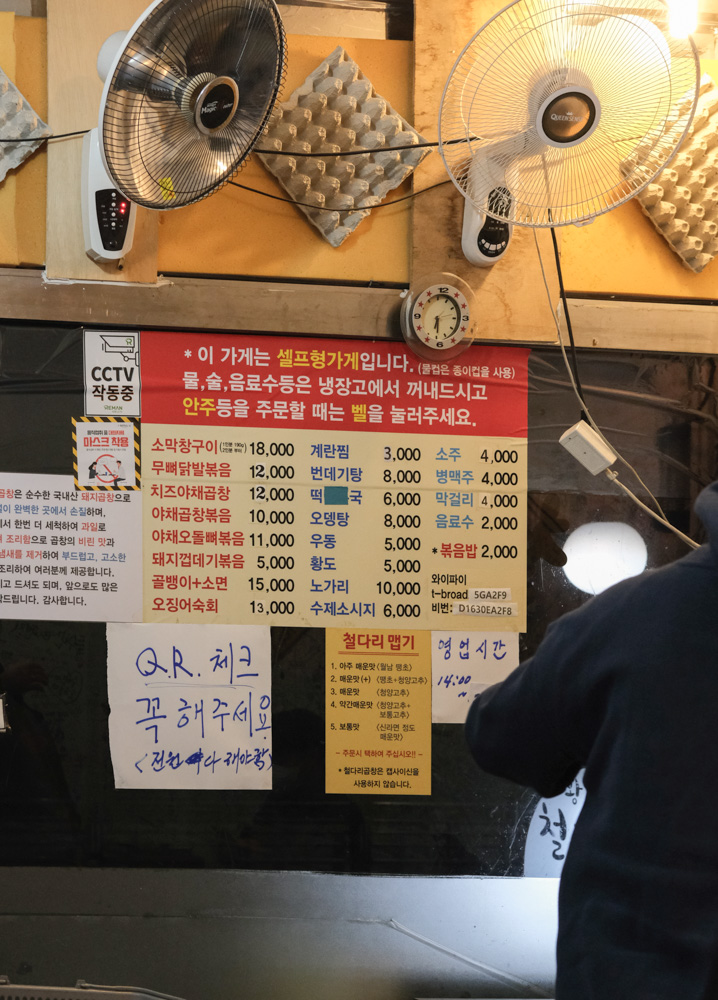 CCTV
작동중
마스크 착용
* 이 가게는 셀프형가게입니다. (물컵은 종이컵을 사용)
물,술,음료수등은 냉장고에서 꺼내드시고
안주등을 주문할 때는 벨을 눌러주세요.
소막창구이 18,000
무뼈닭발볶음 12,000
치즈야채곱창 12,000
야채곱창볶음 10,000
야채오돌뼈볶음 11,000
돼지껍데기볶음 5,000
골뱅이+소면 15,000
오징어숙회 13,000
계란찜 3,000
번데기탕 8,000
떡 국 6,000
오뎅탕 8,000
우동 5,000
황도 5,000
노가리 10,000
수제소시지 6,000
소주 4,000
병맥주 4,000
막걸리 4,000
음료수 2,000
* 볶음밥 2,000
와이파이
t-broad 5GA2F9
비번: D1630EA2F8
곱창은 순수한 국내산 돼지곱창으로
이 완벽한 곳에서 손질하며,
에서 한번 더 세척하여 과일로
조리함으로 곱창의 비린 맛과
냄새를 제거하여 부드럽고, 고소한
조리하여 여러분께 제공합니다.
고 드셔도 되며, 앞으로도 많은
드립니다. 감사합니다.
Q.R. 체크
꼭 해주세요
<전원 다 해야함>
철다리 맵기
1. 아주 매운맛 <월남 땡초>
2. 매운맛(+) <땡초+청양고추>
3. 매운맛 <청양고추>
4. 약간매운맛 <청양고추+
보통고추>
5. 보통맛 <신라면 정도
매운맛>
~ 주문시 택하여 주십시오!! ~
* 철다리곱창은 캡사이신을
사용하지 않습니다.
영업시간
14:00
~
철